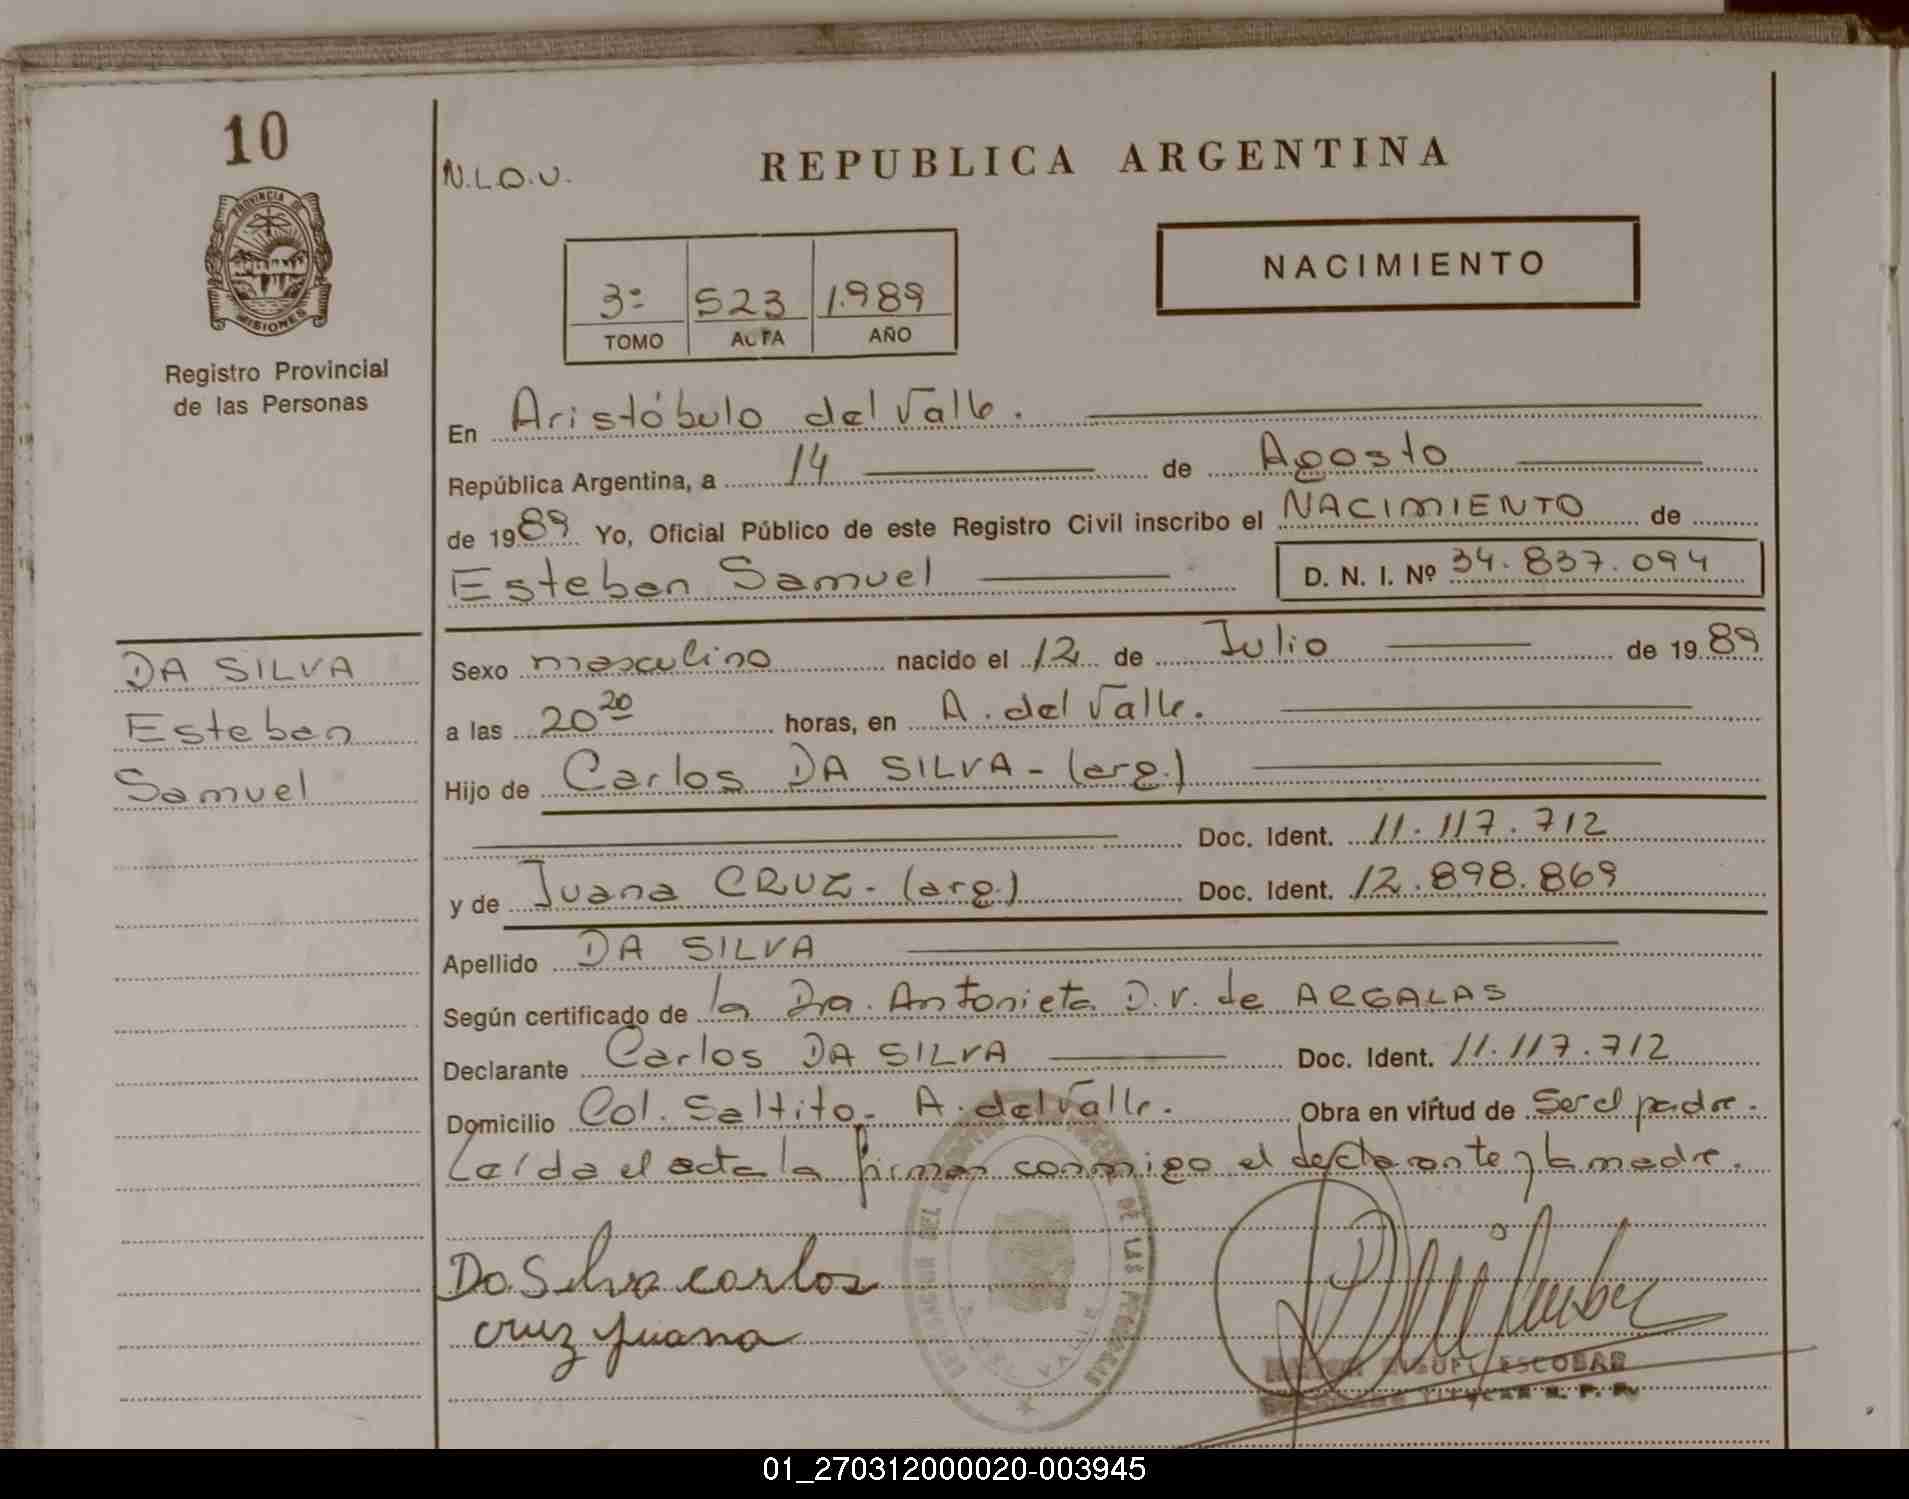 10
N.L.O.U.
REPUBLICA ARGENTINA
PROVINCIA DE
MISIONES
NACIMIENTO
3º 523 1.989
TOMO ACTA AÑO
Registro Provincial
de las Personas
En Aristóbulo del Valle.
República Argentina, a 14 de Agosto
de 1989 Yo, Oficial Público de este Registro Civil inscribo el NACIMIENTO de
Esteban Samuel D. N. I. Nº 34.837.094
DA SILVA
Esteban
Samuel
Sexo masculino nacido el 12 de Julio de 1989
a las 20 20 horas, en A. del Valle.
Hijo de Carlos DA SILVA - (arg.)
Doc. Ident. 11.117.712
y de Juana CRUZ - (arg.) Doc. Ident. 12.898.869
Apellido DA SILVA
Según certificado de la Dra. Antonieta D.V. de ARGALAS
Declarante Carlos DA SILVA Doc. Ident. 11.117.712
Domicilio Col. Saltito - A. del Valle. Obra en virtud de Ser el padre.
Leída el acta la firman conmigo el declarante y la madre.
Da Silva carlos
cruz juana
DE LAS PERSONAS
VALLE
ESCOBAR
01_270312000020-003945